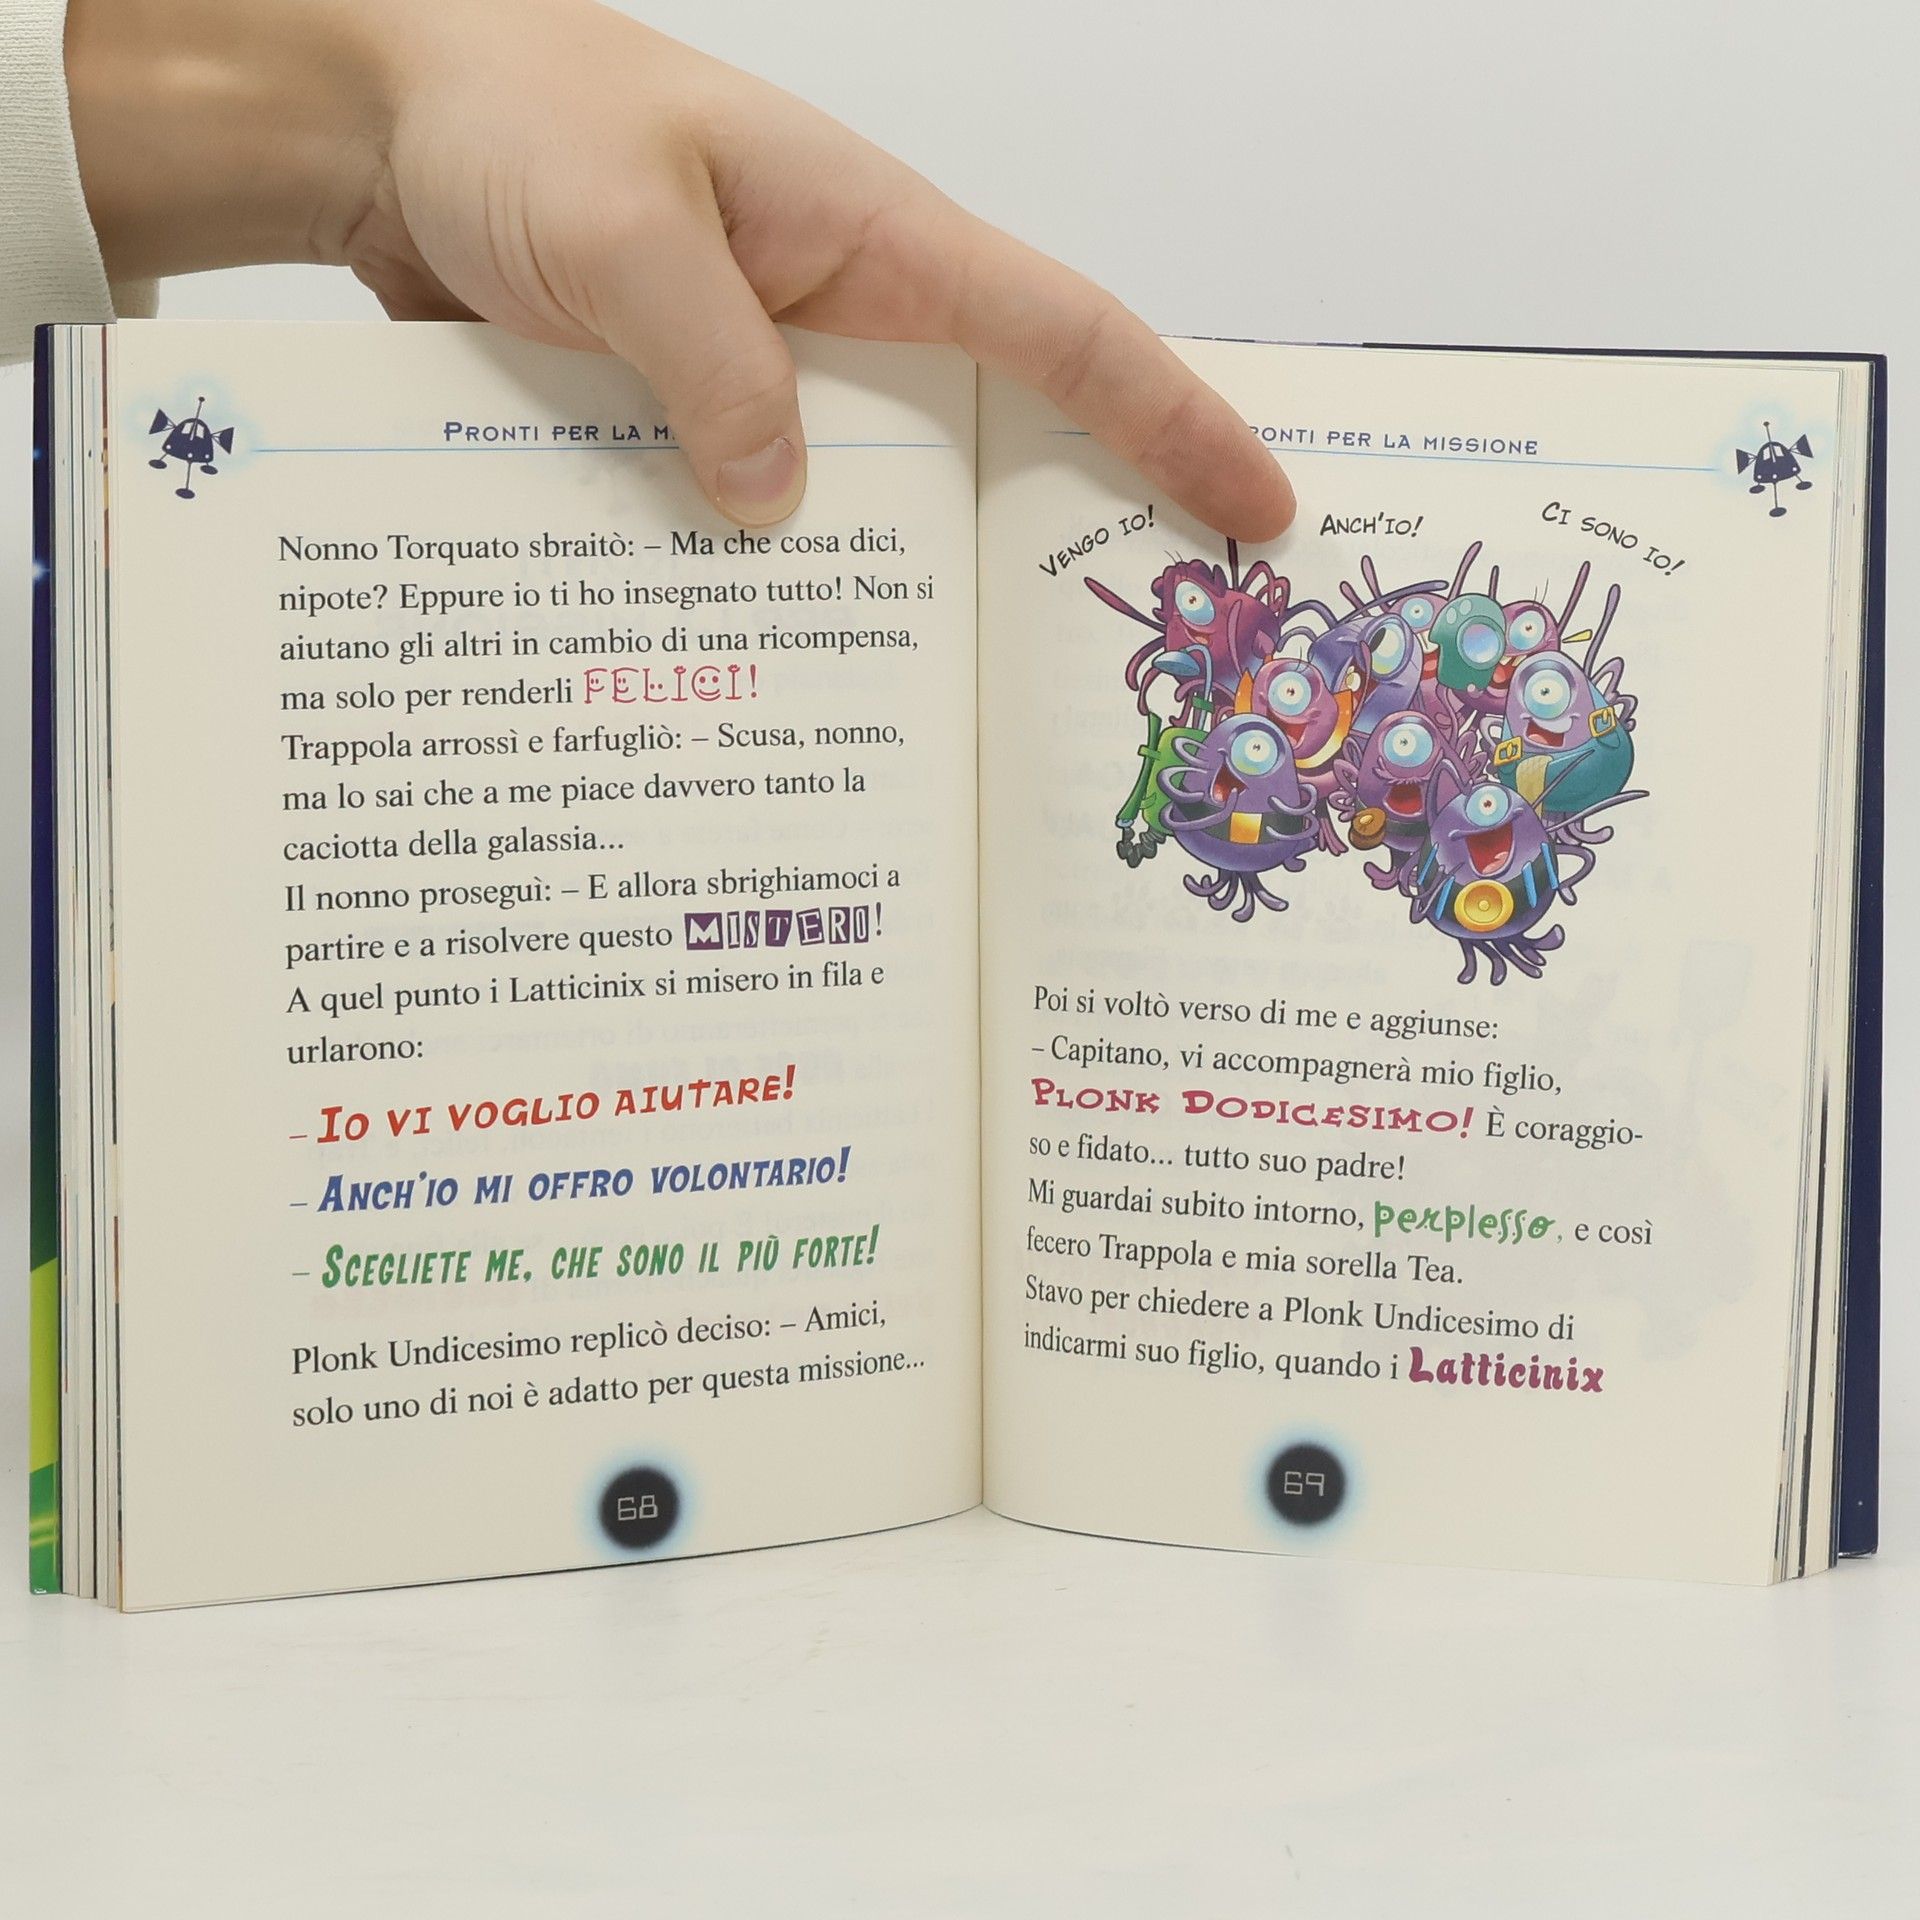 PRONTI PER LA
Nonno Torquato sbraitò: – Ma che cosa dici,
nipote? Eppure io ti ho insegnato tutto! Non si
aiutano gli altri in cambio di una ricompensa,
ma solo per renderli FELICI!
Trappola arrossì e farfugliò: – Scusa, nonno,
ma lo sai che a me piace davvero tanto la
caciotta della galassia...
Il nonno proseguì: – E allora sbrighiamoci a
partire e a risolvere questo MISTERO!
A quel punto i Latticinix si misero in fila e
urlarono:
– IO VI VOGLIO AIUTARE!
– ANCH'IO MI OFFRO VOLONTARIO!
– SCEGLIETE ME, CHE SONO IL PIÙ FORTE!
Plonk Undicesimo replicò deciso: – Amici,
solo uno di noi è adatto per questa missione...
68
PER LA MISSIONE
VENGO IO!
ANCH'IO!
CI SONO IO!
Poi si voltò verso di me e aggiunse:
– Capitano, vi accompagnerà mio figlio,
PLONK DODICESIMO! È coraggio-
so e fidato... tutto suo padre!
Mi guardai subito intorno, perplesso, e così
fecero Trappola e mia sorella Tea.
Stavo per chiedere a Plonk Undicesimo di
indicarmi suo figlio, quando i Latticinix
69